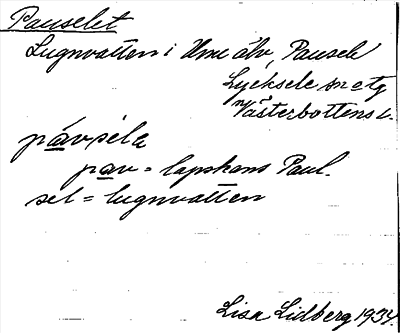 Pauselet
Lugnvatten i Ume älv, Pausele
Lycksele sn etg
Västerbottens l.
pávsela
pav = lapskans Paul.
sel = lugnvatten
Lisa Lidberg 1934.